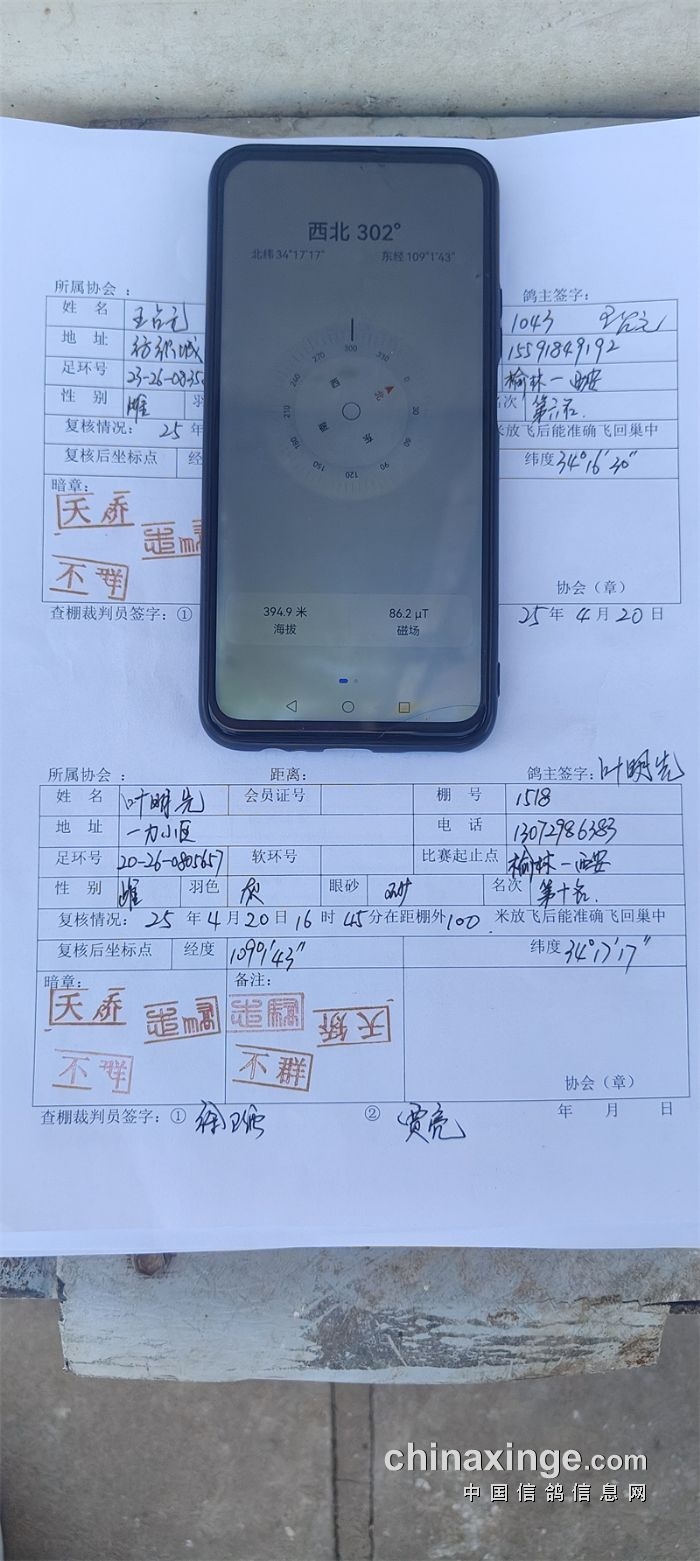 西北 302°
北纬 34°17'17" 东经 109°1'43"
300
270 330
240 西 北 0
210 30
南 东
180 60
150 90
120
394.9 米 86.2 μT
海拔 磁场
所属协会 : 鸽主签字:
姓 名 王占元 1043 王占元
地 址 纺织城 15591849192
足环号 23-26-0835 榆林—西安
性 别 雌 羽 名次 第六名.
复核情况: 25 年 米放飞后能准确飞回巢中
复核后坐标点 经 纬度 34°16'30"
暗章:
天 娇
不 群
协会(章)
查棚裁判员签字: ① 25 年 4 月 20 日
所属协会 : 距离: 鸽主签字: 叶明先
姓 名 叶明先 会员证号 棚 号 1518
地 址 一力小区 电 话 13072986383
足环号 20-26-0805657 软环号 比赛起止点 榆林—西安
性 别 雌 羽色 灰 眼砂 砂 名次 第十名.
复核情况: 25 年 4 月 20 日 16 时 45 分在距棚外 100 米放飞后能准确飞回巢中
复核后坐标点 经度 109°1'43" 纬度 34°17'17"
暗章: 备注:
天 娇 天 娇
不 群 不 群
协会(章)
查棚裁判员签字: ① ② 贾亮 年 月 日
chinaxinge.com
中国信鸽信息网